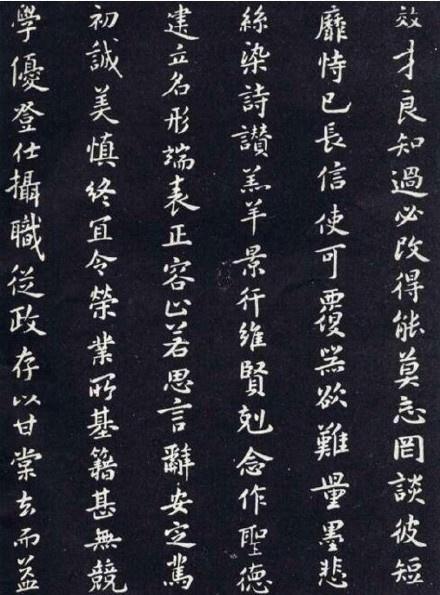 效才良知過必改得能莫忘罔談彼短
靡恃己長信使可覆器欲難量墨悲
絲染詩讃羔羊景行維賢剋念作聖德
建立名形端表正容止若思言辭安定篤
初誠美慎終宜令榮業所基籍甚無競
學優登仕攝職從政存以甘棠去而益